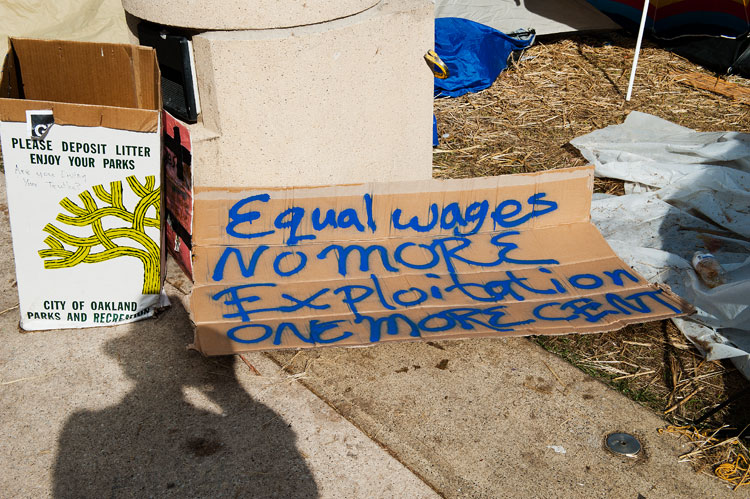 PLEASE DEPOSIT LITTER
ENJOY YOUR PARKS
CITY OF OAKLAND
PARKS AND RECREATION
Equal wages
NO MORE
Exploitation
ONE MORE CENT